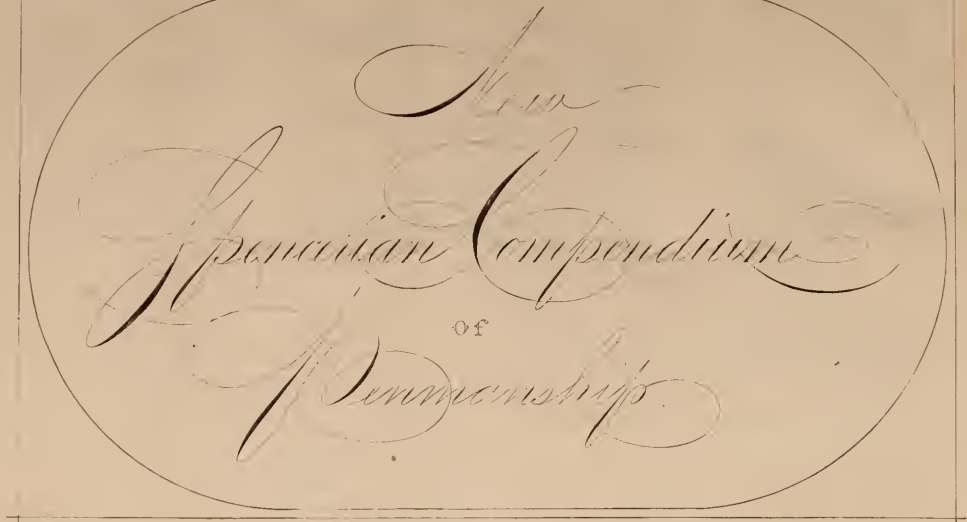 New
Spencerian Compendium
of
Penmanship